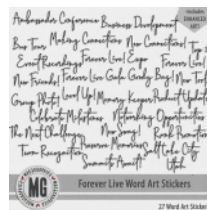 includes
ENHANCED
ARTS
Ambassador Conference Business Development
Bus Tour Making Connections New Connections! Top
Event Recordings Forever Live! Expo Forever Live!
New Friends! Forever Live Gala Goody Bag! New Tools
Group Photo! Level Up! Memory Keeper Product Updates
Celebrate Milestones Networking Opportunities
The Next Challenge New Song! Rank Promotion
Team Recognition Preserve Memories Salt Lake City
Summit Award! Utah
MG
Forever Live Word Art Stickers
27 Word Art Sticker